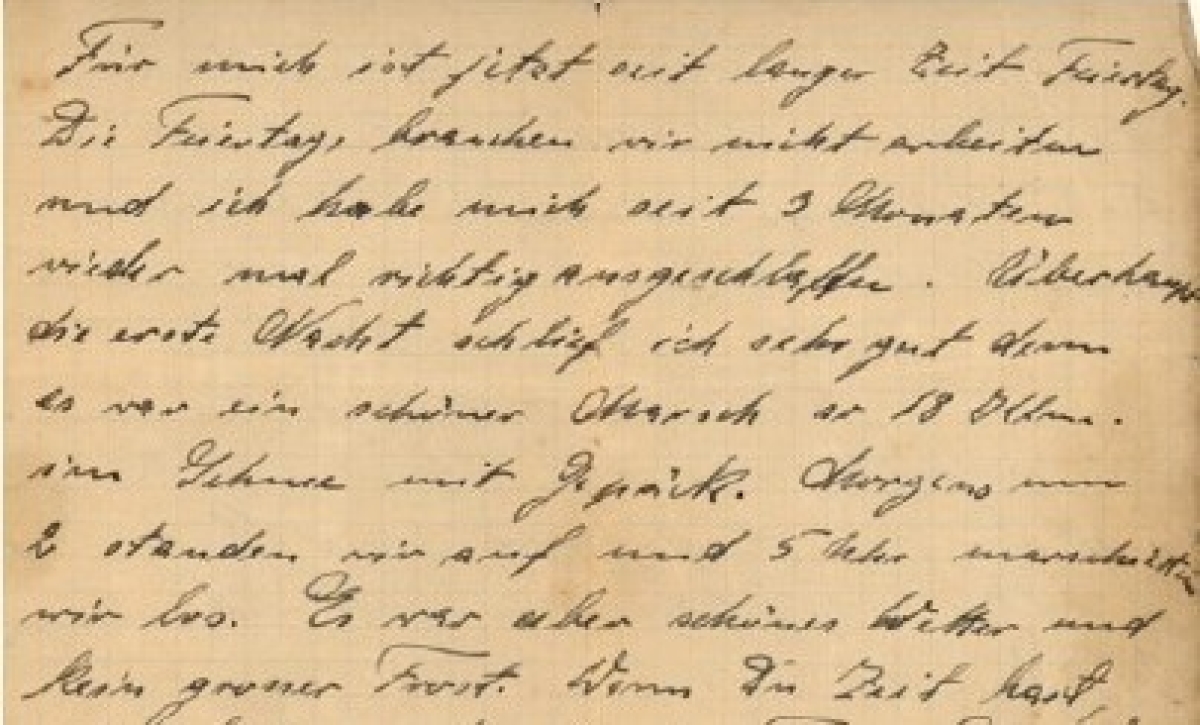 Für mich ist jetzt seit langer Zeit Feiertag.
Die Feiertage brauchen wir nicht arbeiten
und ich habe mich seit 3 Monaten
wieder mal richtig ausgeschlaffen. Überhaupt
die erste Nacht schlief ich sehr gut denn
es war ein schöner Marsch so 18 Klm.
im Schnee mit Gepäck. Morgens um
2 standen wir auf und 5 Uhr marschierten
wir los. Es war aber schönes Wetter und
kein grosser Frost. Wenn Du Zeit hast,